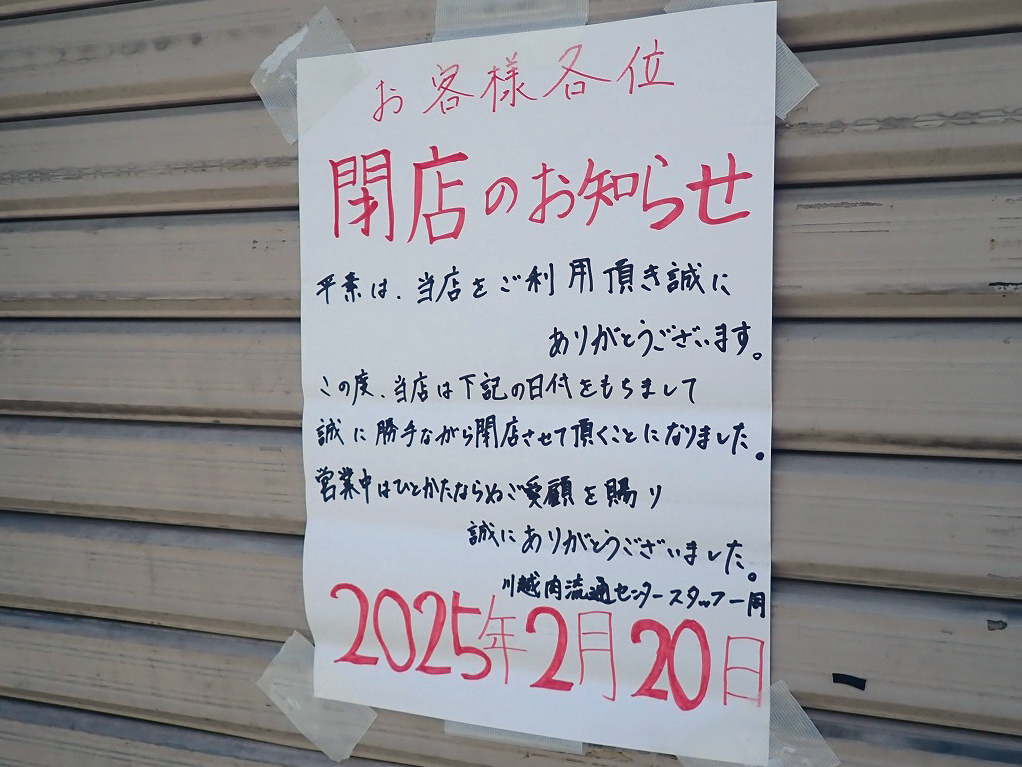 お客様各位
閉店のお知らせ
平素は、当店をご利用頂き誠に
ありがとうございます。
この度、当店は下記の日付をもちまして
誠に勝手ながら閉店させて頂くことになりました。
営業中はひとかたならぬご愛顧を賜り
誠にありがとうございました。
川越肉流通センタースタッフ一同
2025年2月20日